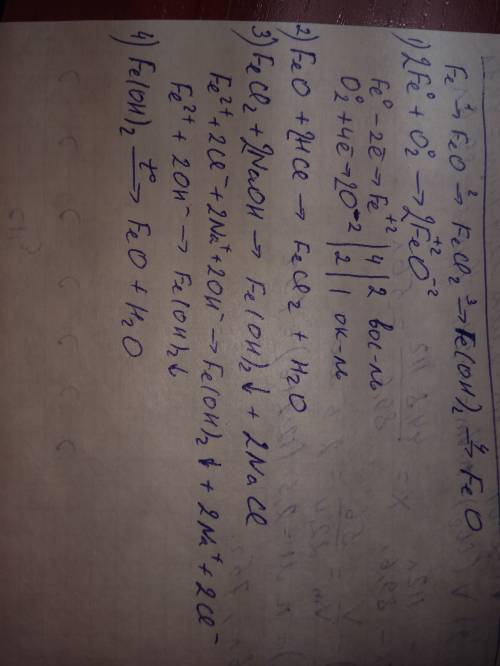 Fe ¹→ FeO ²→ FeCl₂ ³→ Fe(OH)₂ ⁴→ FeO
1) 2Fe⁰ + O₂⁰ → 2Fe⁺²O⁻²
Fe⁰ - 2ē → Fe⁺² | 4 | 2 вос-ль
O₂⁰ + 4ē → 2O⁻² | 2 | 1 ок-ль
2) FeO + 2HCl → FeCl₂ + H₂O
3) FeCl₂ + 2NaOH → Fe(OH)₂↓ + 2NaCl
Fe²⁺ + 2Cl⁻ + 2Na⁺ + 2OH⁻ → Fe(OH)₂↓ + 2Na⁺ + 2Cl⁻
Fe²⁺ + 2OH⁻ → Fe(OH)₂↓
4) Fe(OH)₂ t°→ FeO + H₂O